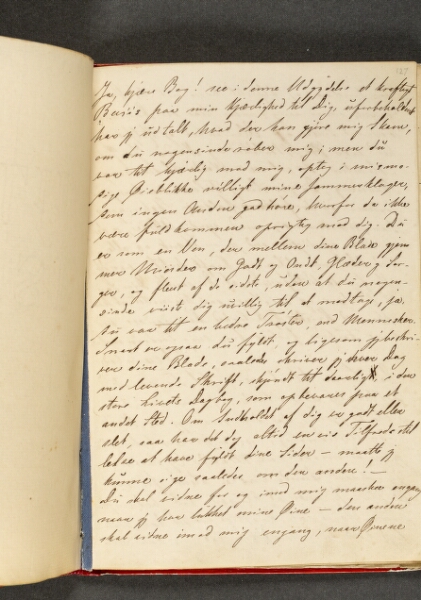 Ja, kjære Bog! see i denne Udgydelse et kraftigt
Beviis paa min Kjærlighed til Dig, uforbeholdent
har jeg udtalt, hvad der kan gjøre mig Skam,
om du nogensinde røber mig; men du
var tit kjærlig mod mig, optog i
Øieblikke villigt mine Jammerklager,
som ingen Anden gad høre, hvorfor da ikke
være fuldkommen oprigtig mod dig. Du
er som en Ven, der mellem dine Blade gjem
mer Minder om Godt og Ondt, Glæder og Sor
ger, og fleest af de sidste, uden at du nogen
sinde viiste dig uvillig til at modtage, ja,
du var tit en bedre Trøster, end Mennesker.
Snart er ogsaa du fyldt, og ligesom jeg beskri
ver dine Blade, saaledes skriver jeg hver Dag
med levende Skrift, skjøndt tit daarligt, i den
store Livets Dagbog, som opbevares paa et
andet Sted. Om Indholdet af dig er godt eller
slet, saa har det dog altid en vis Tilfredsstil
lelse at have fyldt dine Sider – maatte jeg
kunne sige saaledes om den anden! –
Du skal vidne for og imod mig maaskee engang
naar jeg har lukket mine Øine – den anden
skal vidne imod mig engang, naar Øinene